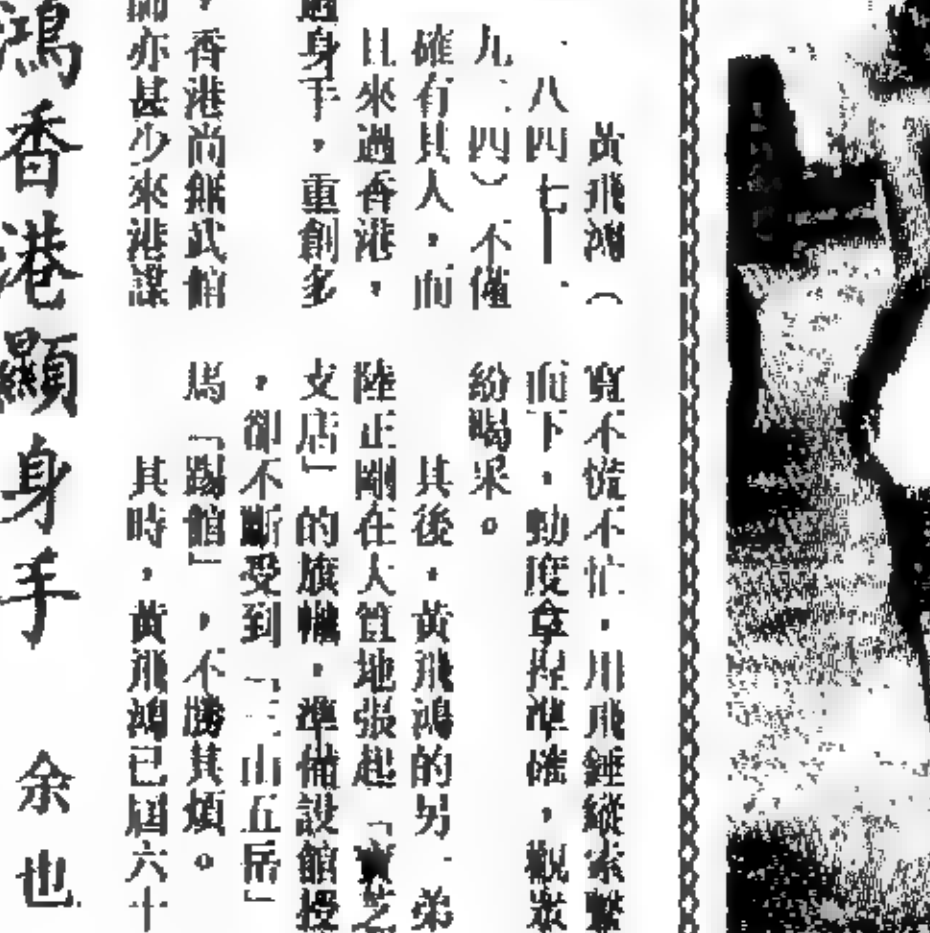 黃飛鴻（
一八四七—一
九二四）不僅
確有其人，而
且來過香港，
過身手，重創多
，香港尚無武館
師亦甚少來港謀
寬不慌不忙，用飛錘縱索繫
而下，勁度拿捏準確，觀眾
紛喝采。
其後，黃飛鴻的另一弟
陸正剛在大笪地張起「寶芝
支店」的旗幟，準備設館授
，卻不斷受到「三山五岳」
馬「踢館」，不勝其煩。
其時，黃飛鴻已屆六十
鴻香港顯身手
余也